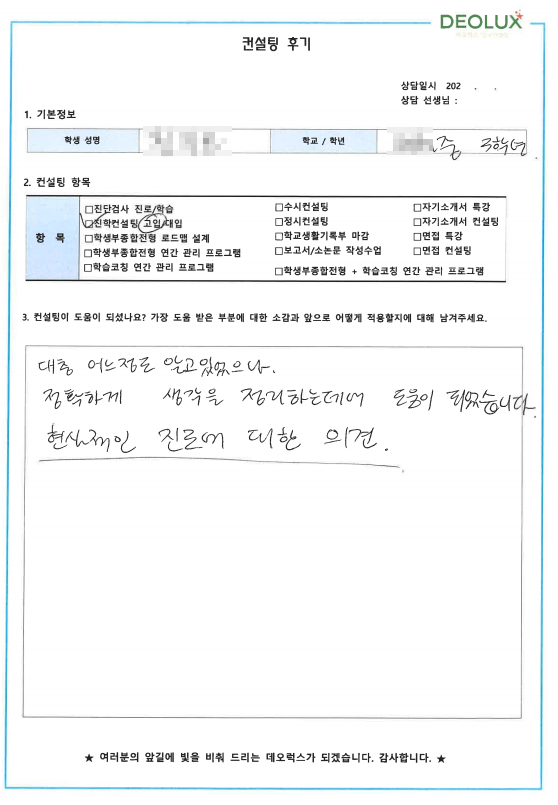 DEOLUX
컨설팅 후기
상담일시 202 . .
상담 선생님 :
1. 기본정보
학생 성명 학교 / 학년 중 3학년
2. 컨설팅 항목
항 목
□진단검사 진로/학습 □수시컨설팅 □자기소개서 특강
□진학컨설팅 고입/대입 □정시컨설팅 □자기소개서 컨설팅
□학생부종합전형 로드맵 설계 □학교생활기록부 마감 □면접 특강
□학생부종합전형 연간 관리 프로그램 □보고서/소논문 작성수업 □면접 컨설팅
□학습코칭 연간 관리 프로그램 □학생부종합전형 + 학습코칭 연간 관리 프로그램
3. 컨설팅이 도움이 되셨나요? 가장 도움 받은 부분에 대한 소감과 앞으로 어떻게 적용할지에 대해 남겨주세요.
대충 어느정도 알고있었으나.
정확하게 생각을 정리하는데에 도움이 되었습니다.
현실적인 진로에 대한 의견.
★ 여러분의 앞길에 빛을 비춰 드리는 데오럭스가 되겠습니다. 감사합니다. ★